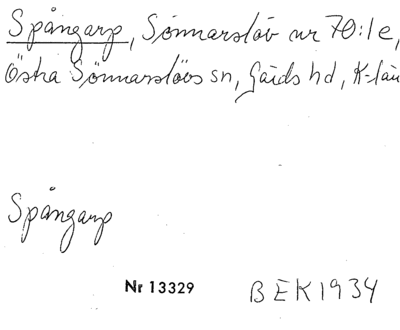 Spångarp, Sönnarslöv nr 70:1e,
Östra Sönnarslövs sn, Gärds hd, K-län
Spångarp
Nr 13329 BEK1934